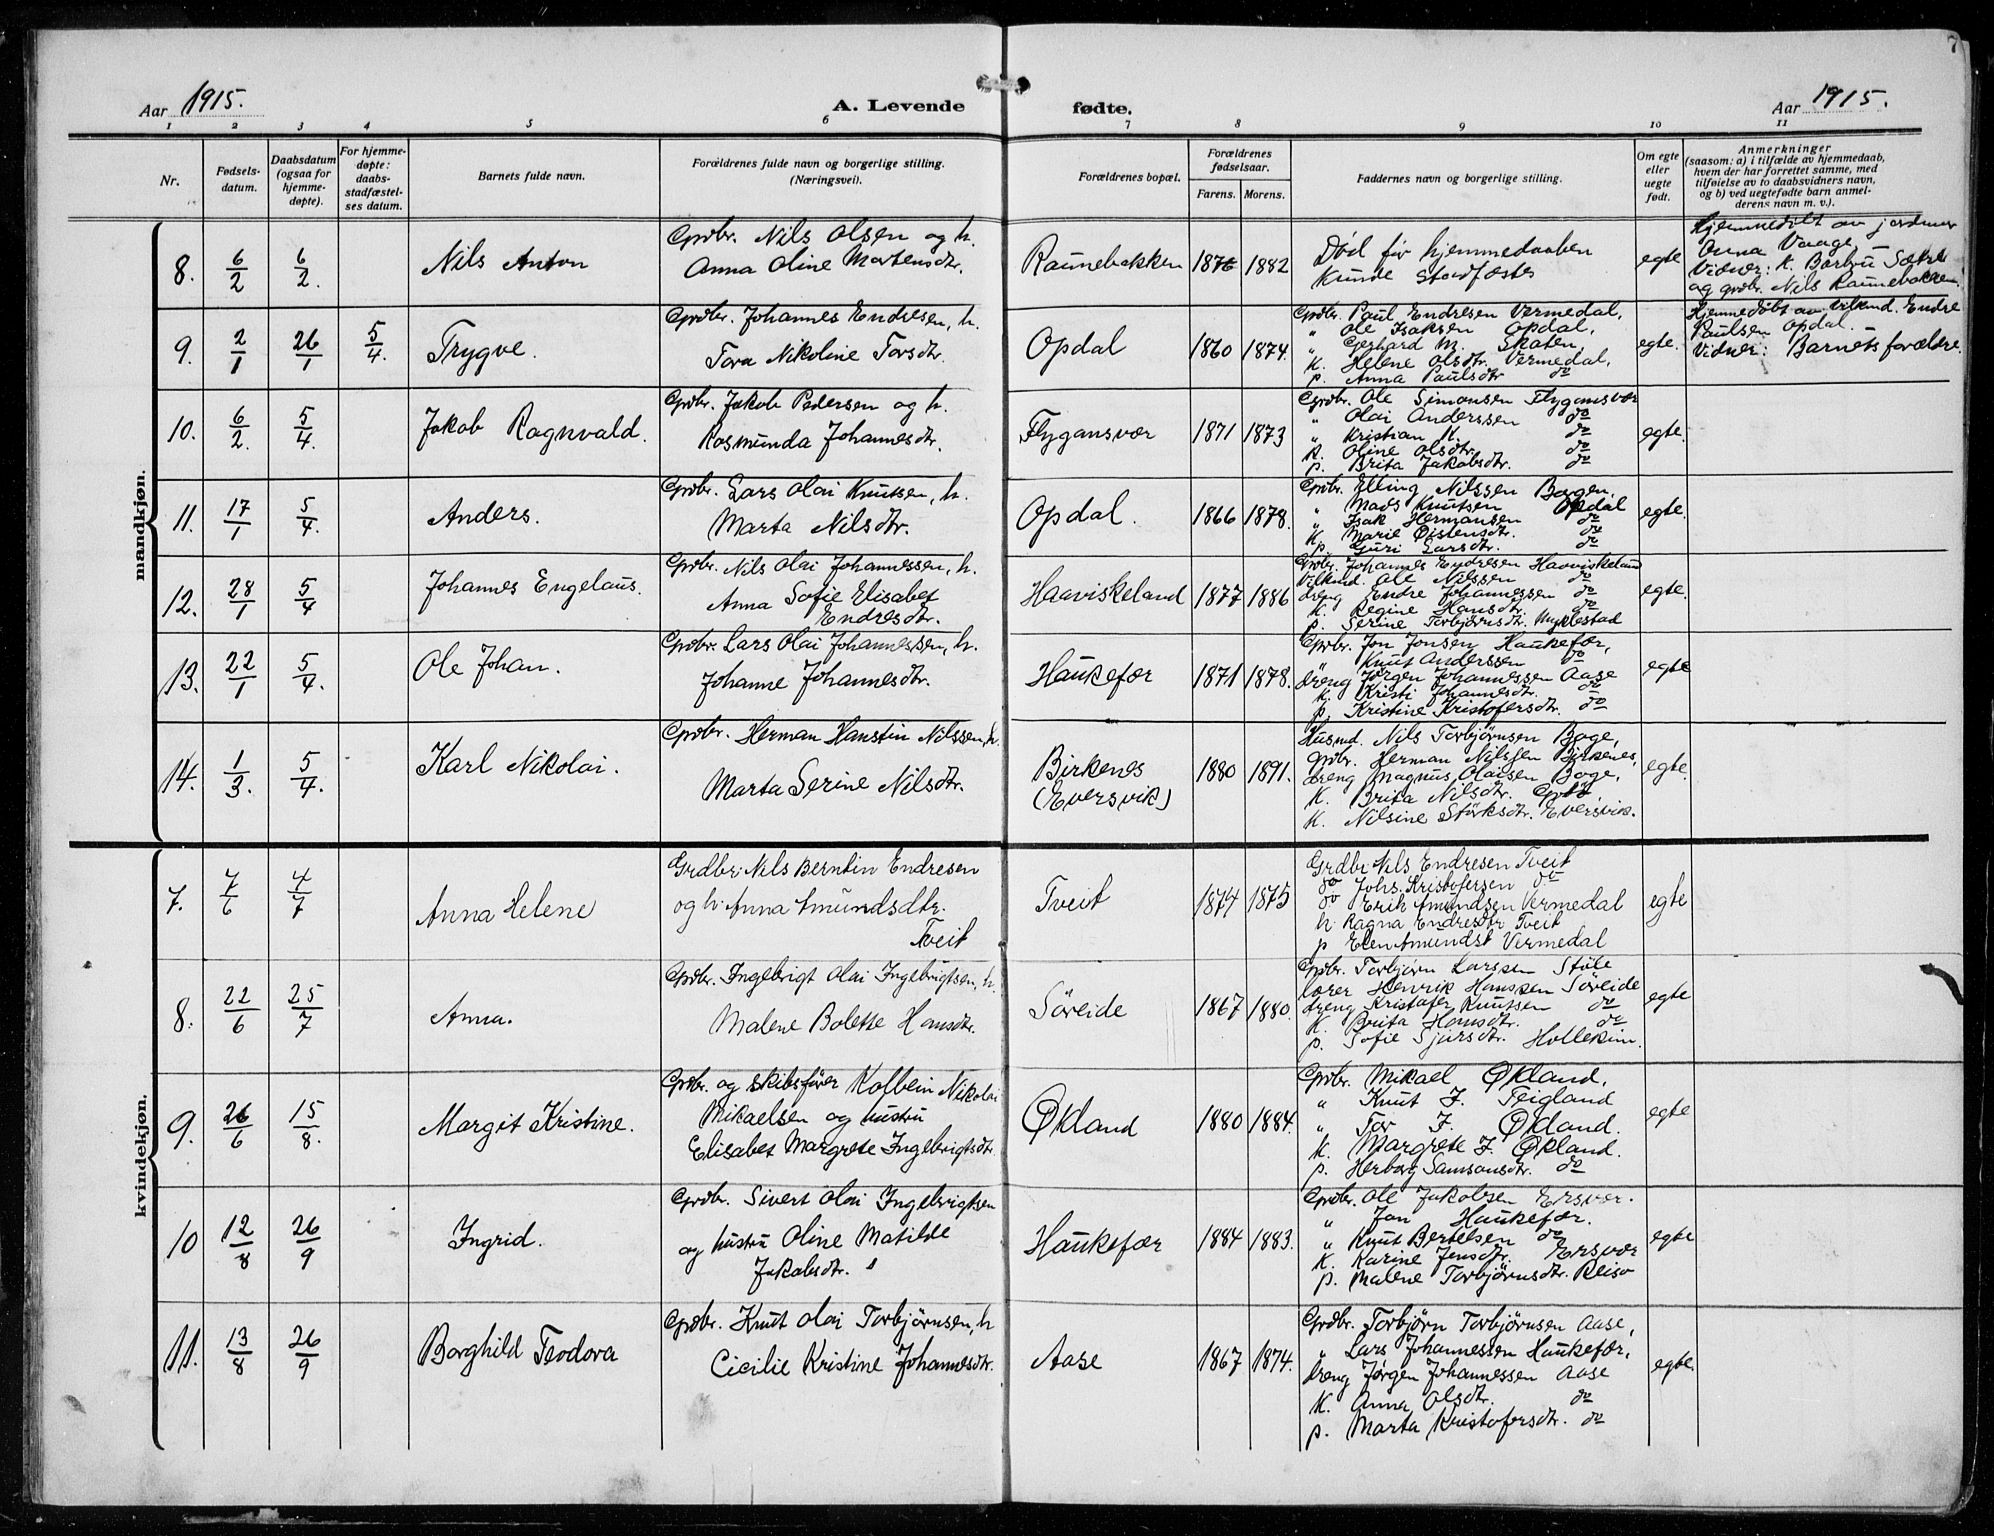 7
Aar 1915.
A. Levende fødte.
Aar 1915.
1 2 3 4 5 6 7 8 9 10 11
Nr.
Fødsels-
datum.
Daabsdatum
(ogsaa for
hjemme-
døpte).
For hjemme-
døpte:
daabs-
stadfæstel-
ses datum.
Barnets fulde navn.
Forældrenes fulde navn og borgerlige stilling.
(Næringsvei).
Forældrenes bopæl.
Forældrenes
fødselsaar.
Farens. Morens.
Faddernes navn og borgerlige stilling.
Om egte
eller
uegte
født.
Anmerkninger
(saasom: a) i tilfælde av hjemmedaab,
hvem der har forrettet samme, med
tilføielse av to daabsvidners navn,
og b) ved uegtefødte barn anmel-
derens navn m. v.).
mandkjøn.
8. 6/2 6/2. Nils Anton
Grdbr. Nils Olsen og h.
Anna Oline Martensdtr.
Raunebakken 1876 1882
Død før hjemmedaaben
kunde stadfæstes
egte
Hjemmedøbt av jordmor
Anna Vaage.
Vidner: k. Barbru Sætre
og grdbr. Nils Raunebakken.
9. 2/1 26/1 5/4. Trygve.
Grdbr. Johannes Endresen, h.
Tora Nikoline Torsdtr.
Opdal 1860 1874.
Grdbr. Paul Endresen Vermedal,
" Ole Isaksen Opdal,
" Gerhard M. Skaten,
k. Helene Olsdtr. Vermedal,
p. Anna Paulsdtr do
egte.
Hjemmedøbt av Vilkmd. Endre
Paulsen Opdal.
Vidner: Barnets forældre.
10. 6/2. 5/4. Jakob Ragnvald.
Grdbr. Jakob Pedersen og h.
Rasmunda Johannesdtr.
Flygansvær 1871 1873
Grdbr. Ole Simonsen Flygansvær
" Olai Anderssen do
" Kristian K. do
k. Oline Olsdtr. do
p. Brita Jakobsdtr. do
egte.
11. 17/1 5/4. Anders.
Grdbr. Lars Olai Knutsen, h.
Marta Nilsdtr.
Opdal. 1866 1878.
Grdbr. Elling Nilssen Bogen.
" Mads Knutsen Opdal
" Isak Hermansen do
k. Marie Øistensdtr. do
p. Guri Larsdtr. do
egte.
12. 28/1 5/4 Johannes Engelaus.
Grdbr. Nils Olai Johannessen, h.
Anna Sofie Elisabet
Endresdtr.
Haaviskeland 1877 1886
Grdbr. Johannes Endresen Haaviskeland
Vilkmd. Ole Nilssen do
dreng Endre Johannessen do
k. Regine Hansdtr. do
p. Serine Torbjørnsdtr. Myklestad
egte.
13. 22/1 5/4. Ole Johan.
Grdbr. Lars Olai Johannessen, h.
Johanne Johannesdtr.
Haukefær 1871 1878.
Grdbr. Jon Jonsen Haukefær,
" Knut Anderssen do
dreng Jørgen Johannessen Aase
k. Kristi Johannesdtr. do
p. Kristine Kristofersdtr. do
egte
14. 1/3. 5/4. Karl Nikolai.
Grdbr. Herman Hanstin Nilssen, h.
Marta Serine Nilsdtr.
Birkenes
(Eversvik) 1880 1891.
Husmd. Nils Torbjørnsen Boge,
Grdbr. Herman Nilssen Birkenes,
dreng Magnus Olaisen Boge,
k. Brita Nilsdtr.
k. Nilsine Størksdtr. Eversvik.
egte.
kvindekjøn.
7. 7/6 4/7 Anna Helene
Grdbr: Nils Berntin Endresen
og h: Anna Amundsdtr.
Tveit
Tveit 1874 1875
Grdbr: Nils Endresen Tveit
do Johs. Kristofersen do
do Erik Amundsen Vermedal
h: Ragna Endresdtr Tveit
p Elen Amundsd Vermedal
egte
8. 22/6 25/7 Anna.
Grdbr. Ingebrigt Olai Ingebrigtsen, h.
Malene Bolette Hansdtr.
Söreide 1867 1880.
Grdbr. Torbjørn Larssen Støle
lærer Henrik Hanssen Søreide
dreng Kristofer Knutsen do
k. Brita Hansdtr. do
p. Sofie Sjursdtr. Hollekim.
egte
9. 26/6 15/8. Margit Kristine.
Grdbr. og skibsfører Kolbein Nikolai
Mikaelsen og hustru
Elisabet Margrete Ingebrigtsdtr
Økland 1880 1884.
Grdbr. Mikael Økland,
" Knut J. Teigland
" Tor J. Økland.
k. Margrete J. Økland.
p. Herborg Samsonsdtr. do
egte
10 12/8 26/9 Ingrid.
Grdbr. Sivert Olai Ingebrigtsen
og hustru Oline Matilde
Jakobsdtr.
Haukefær 1884 1883.
Grdbr. Ole Jakobsen Ersvær.
" Jon Haukefær.
" Knut Bertelsen do
k. Karine Jensdtr. Ersvær
p. Malene Torbjørnsdtr. Reisø
egte
11. 13/8 26/9 Borghild Teodora
Grdbr. Knut Olai Torbjørnsen, h
Cicilie Kristine Johannesdtr.
Aase 1867 1874.
Grdbr. Torbjørn Torbjørnsen Aase,
" Lars Johannessen Haukefær,
dreng Jørgen Johannessen Aase
k. Anna Olsdtr. do
p. Marta Kristofersdtr. do
egte.